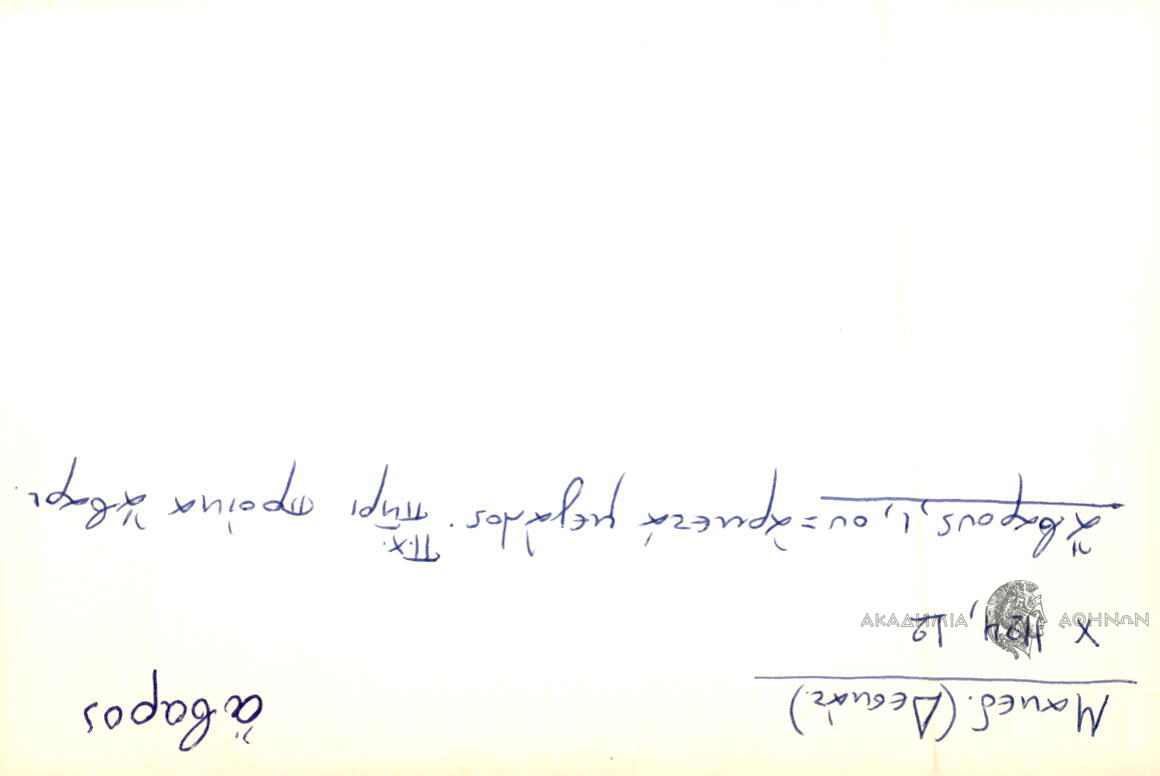 Μακεδ. (Δεσκάτ.)
ἄβαρος
Χ
ΑΚΑΔΗΜΙΑ ΑΘΗΝΩΝ
ἄβαρους, ι, ου = ἀρκετά μεγάλος. π.χ. πῆρι προίκα ἄβαρι.